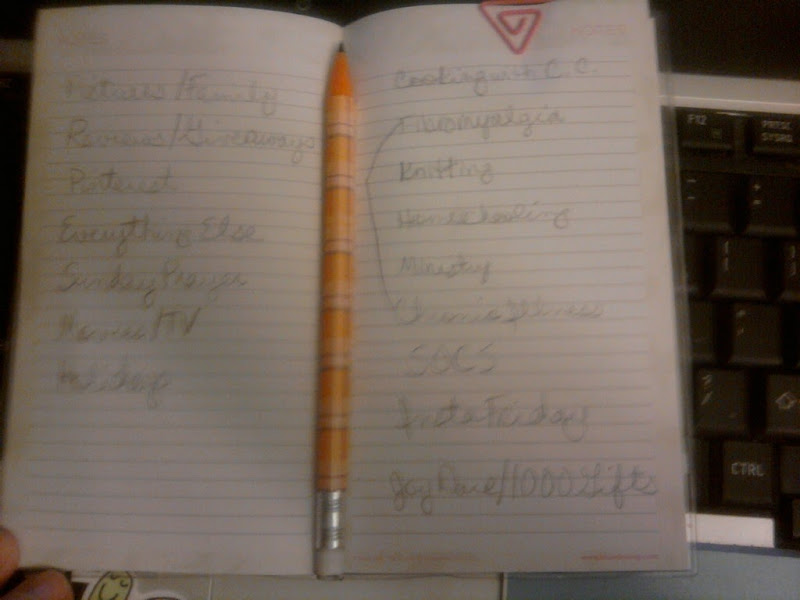 Pictures/Family
Reviews/Giveaways
Pinterest
Everything Else
Sunday Prayer
Movies/TV
Holidays
NOTES
Cooking with C.C.
Fibromyalgia
Knitting
Homeschooling
Ministry
Chronic Illness
SOCS
InstaFriday
Joy Dare/1000 Gifts
F12
PRTSC
SYSRQ
CTRL